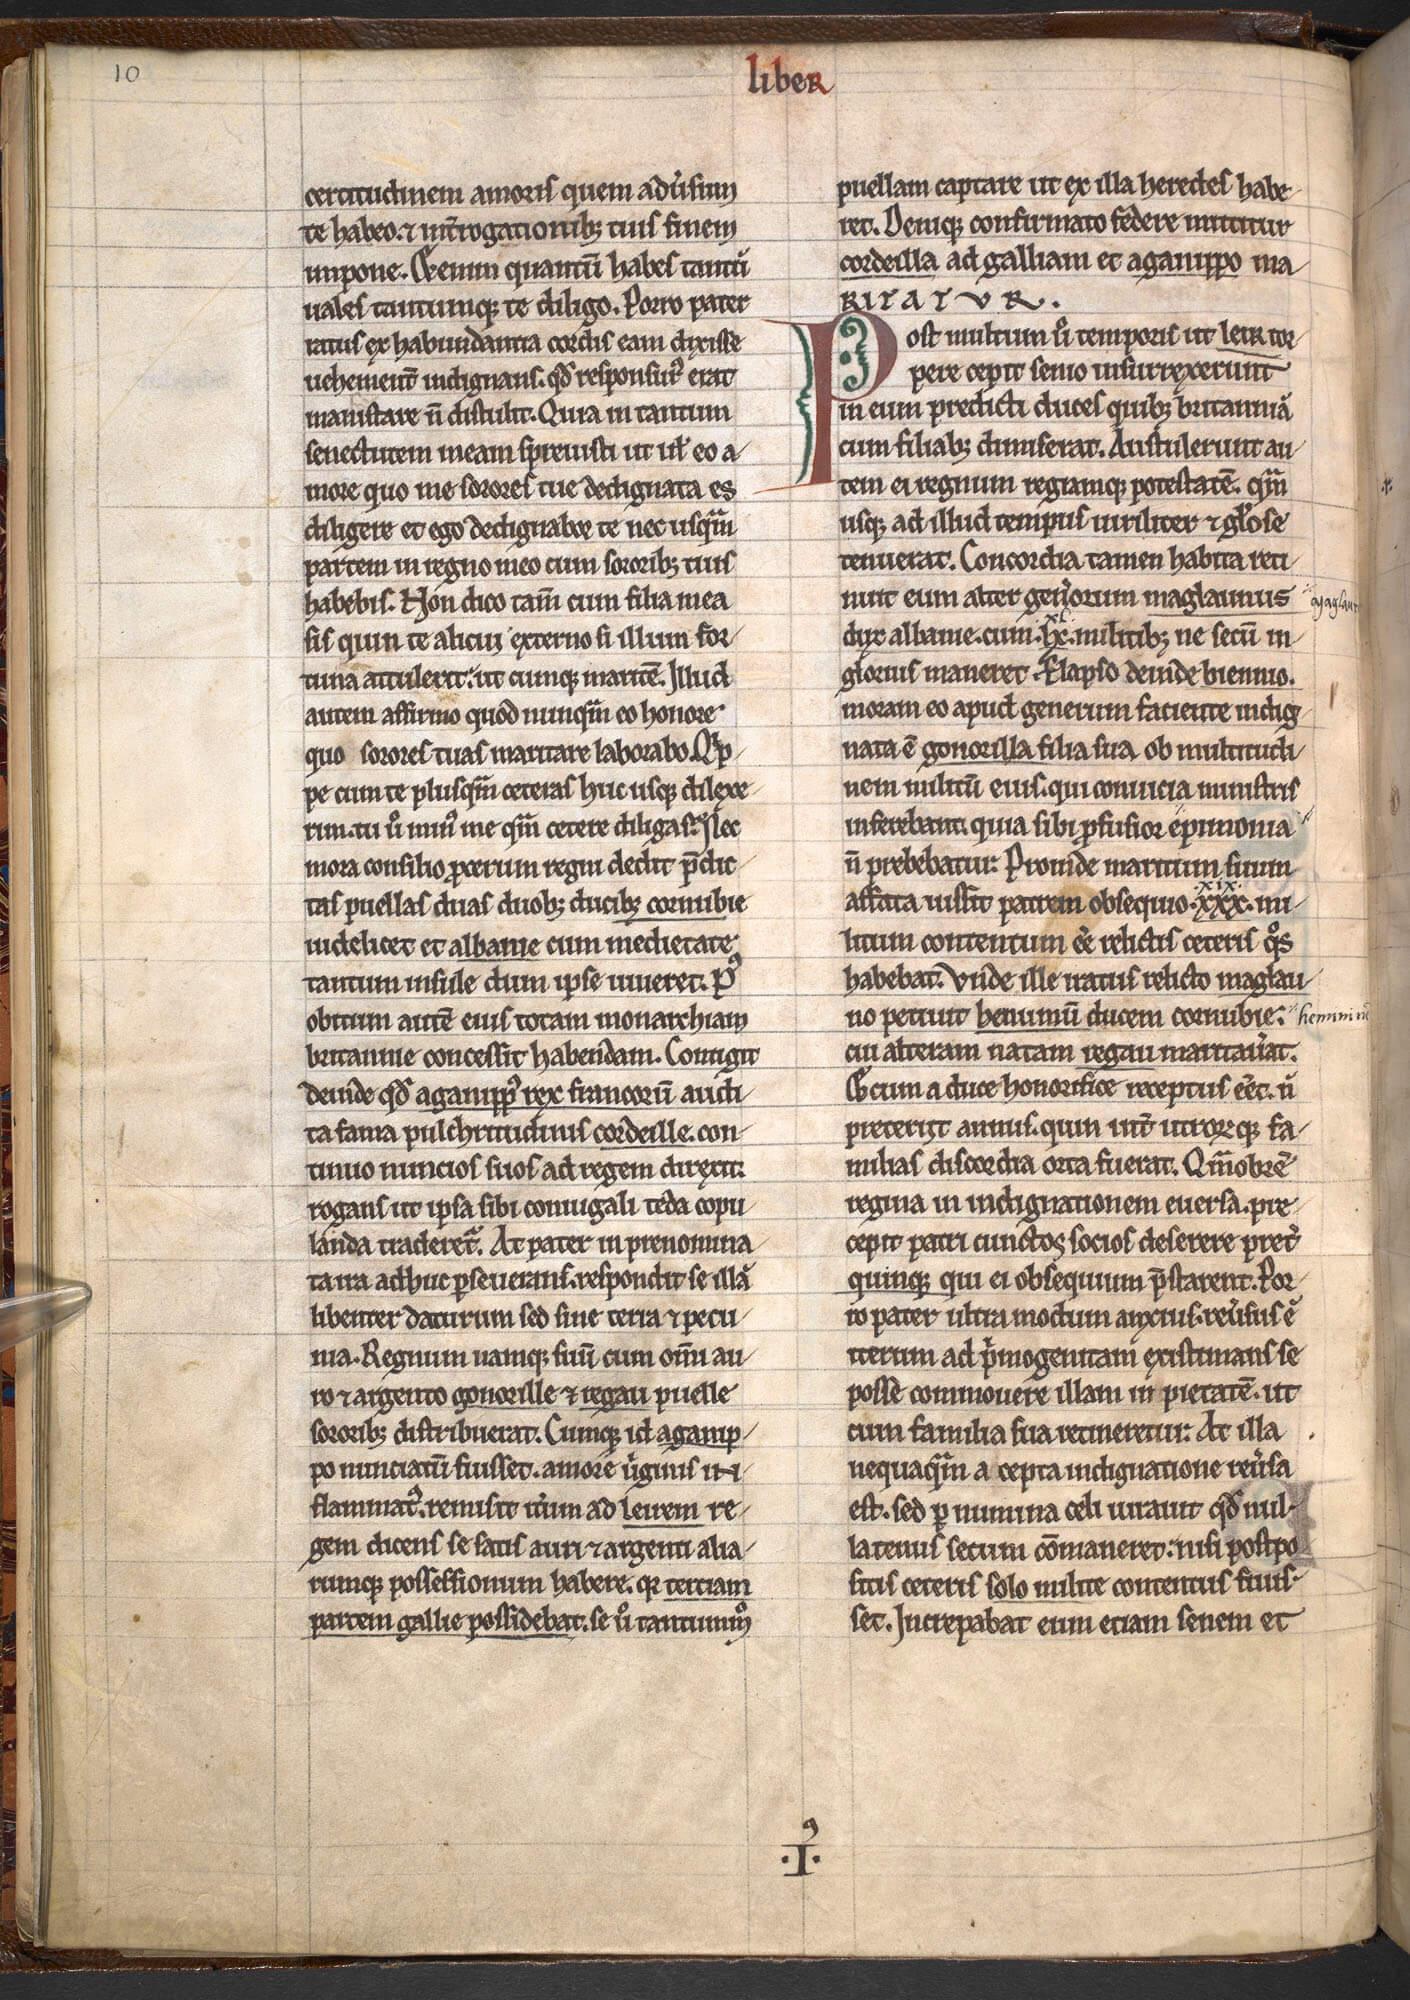 10
liber
certitudinem amoris quem adũsum
te habeo. ⁊ int̃rogationibꝫ tuis finem
impone. Etenim quantũ habes tantũ
uales tantumqꝫ te diligo. Porro pater
ratus ex habundantia cordis eam dixisse
uehement̃ indignans. qđ responsurꝰ erat
manistare ñ distulit. Quia in tantum
senectutem meam spreuisti ut ut̃ eo a-
more quo me sorores tue dedignata es
diligere et ego dedignabor te nec usqᷓm
partem in regno meo cum sororibꝫ tuis
habebis. Non dico tam̃ cum filia mea
sis quin te alicui externo si illum for-
tuna attulerit. ut cumqꝫ maritẽ. Illud
autem affirmo quod nunqᷓm eo honore
quo sorores tuas maritare laborabo. Qip-
pe cum te plusqᷓm ceteras huc usqꝫ dilexe-
rim. tu ũ minꝰ me qᷓm cetere diligas. Nec
mora consilio ꝓcerum regni dedit p̄dic-
tas puellas duas duobꝫ ducibꝫ cornubie
uidelicet et albanie cum medietate
tantum insule dum ipse uiueret. Pꝰ
obitum autẽ eius totam monarchiam
britannie concessit habendam. Contigit
deinde qđ aganippꝰ rex francorũ audi-
ta fama pulchritudinis cordeille. con-
tinuo nuncios suos ad regem direxit.
rogans ut ipsa sibi coniugali teda copu-
landa traderet᷑. At pater in prenomina-
ta ira adhuc ꝑseuerans. respondit se illã
libenter daturum sed sine terra ⁊ pecu-
nia. Regnum namqꝫ suũ cum om̃i au-
ro ⁊ argento gonorille ⁊ regau puelle
sororibꝫ distribuerat. Cumqꝫ id aganip-
po nunciatũ fuisset. amore ũginis in-
flammatꝰ. remisit it̃um ad leirem re-
gem dicens se satis auri ⁊ argenti alia-
rumqꝫ possessionum habere. qꝛ tertiam
partem gallie possidebat. se ũ tantummͦ
puellam captare ut ex illa heredes habe-
ret. Deniqꝫ confirmato federe mittitur
cordeilla ad galliam et aganippo ma-
RITATVR.
Post multum ũ temporis ut leir tor-
pere cepit senio insurrexerunt
in eum predicti duces quibꝫ britanniã
cum filiabꝫ diuiserat. Austulerunt au-
tem ei regnum regiamqꝫ potestatẽ. qᷓm
usqꝫ ad illud tempus uiriliter ⁊ glõse
tenuerat. Concordia tamen habita reti-
nuit eum alter geñorum maglaunus
dux albanie. cum .lx. militibꝫ ne secũ in-
.xl.
glorius maneret. Elapso deinde biennio.
moram eo apud generum faciente indig-
nata ẽ gonorilla filia sua ob multitudi-
nem militũ eius. qui conuicia ministris
inferebant. quia sibi ꝓfusior epinonia
ñ prebebatur. Proinde maritum suum
affata iussit patrem obsequio .xxx. mi-
.xix.
litum contentum eẽ relictis ceteris qͦs
habebat. Vnde ille iratus relicto maglau-
no petiuit henuinũ ducem cornubie.
cui alteram natam regau maritaũat.
Et cum a duce honorifice receptus eẽt. ñ
preteriit annus. quin int̃ utrorqꝫ fa-
milias discordia orta fuerat. Qᷓmobrẽ
regina in indignationem euersa. pre-
cepit patri cunctos socios deserere pret̃
quinqꝫ qui ei obsequium p̄starent. Por-
ro pater ultra modum anxius. reũsus ẽ
iterum ad pͥmogenitam existimans se
posse commouere illam in pietatẽ. ut
cum familia sua retineretur. At illa
nequaqᷓm a cepta indignatione reũsa
est. sed ꝑ numina celi iurauit qđ nul-
latenus secum cõmaneret. nisi postpo-
sitis ceteris solo milite contentus fuis-
set. Increpabat eum etiam senem et
.I.